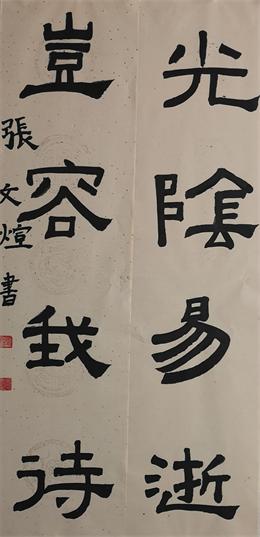 光陰易逝
豈容我待
張文煊書